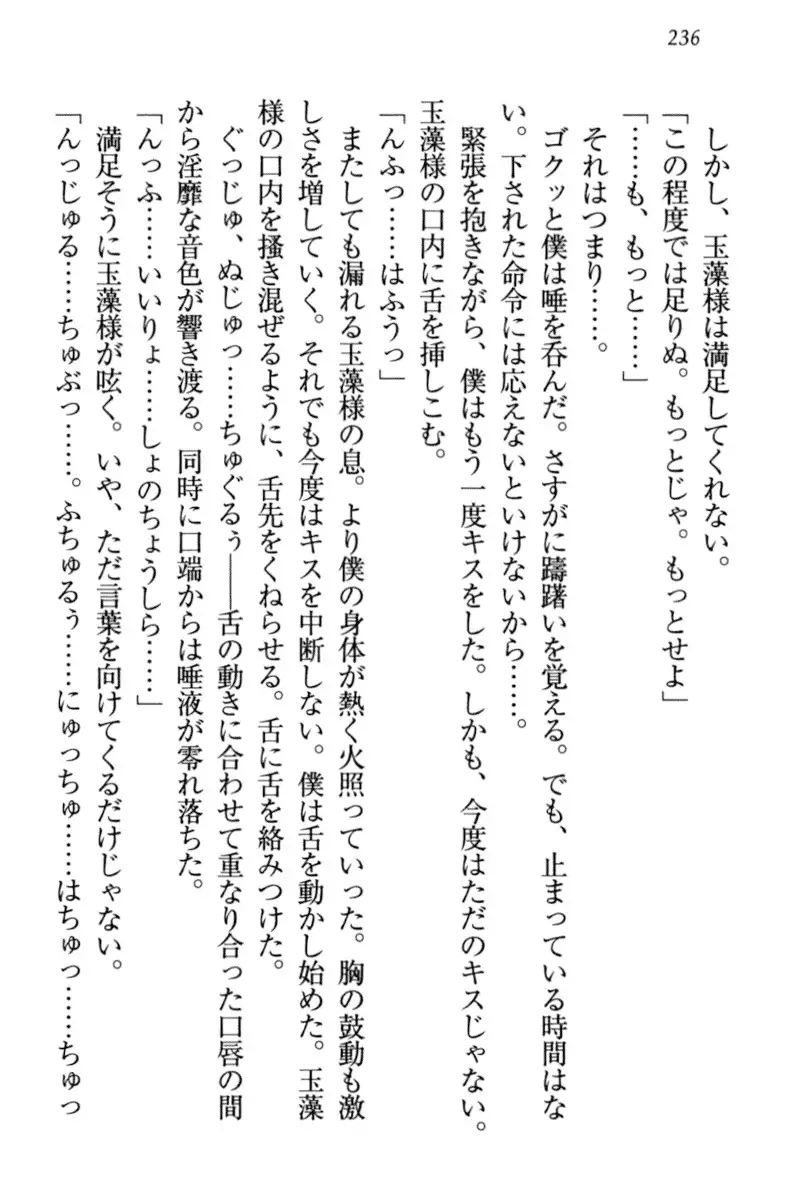 236
しかし、玉藻様は満足してくれない。
「この程度では足りぬ。もっとじゃ。もっとせよ」
「……も、もっと……」
それはつまり……。
ゴクッと僕は唾を呑んだ。さすがに躊躇いを覚える。でも、止まっている時間はな
い。下された命令には応えないといけないから……。
緊張を抱きながら、僕はもう一度キスをした。しかも、今度はただのキスじゃない。
玉藻様の口内に舌を挿しこむ。
「んふっ……はふうっ」
またしても漏れる玉藻様の息。より僕の身体が熱く火照っていった。胸の鼓動も激
しさを増していく。それでも今度はキスを中断しない。僕は舌を動かし始めた。玉藻
様の口内を掻き混ぜるように、舌先をくねらせる。舌に舌を絡みつけた。
ぐっじゅ、ぬじゅっ……ちゅぐるぅ――舌の動きに合わせて重なり合った口唇の間
から淫靡な音色が響き渡る。同時に口端からは唾液が零れ落ちた。
「んっふ……いいりょ……しょのちょうしら……」
満足そうに玉藻様が呟く。いや、ただ言葉を向けてくるだけじゃない。
「んっじゅる……ちゅぶっ……。ふちゅるぅ……にゅっちゅ……はちゅっ……ちゅっ